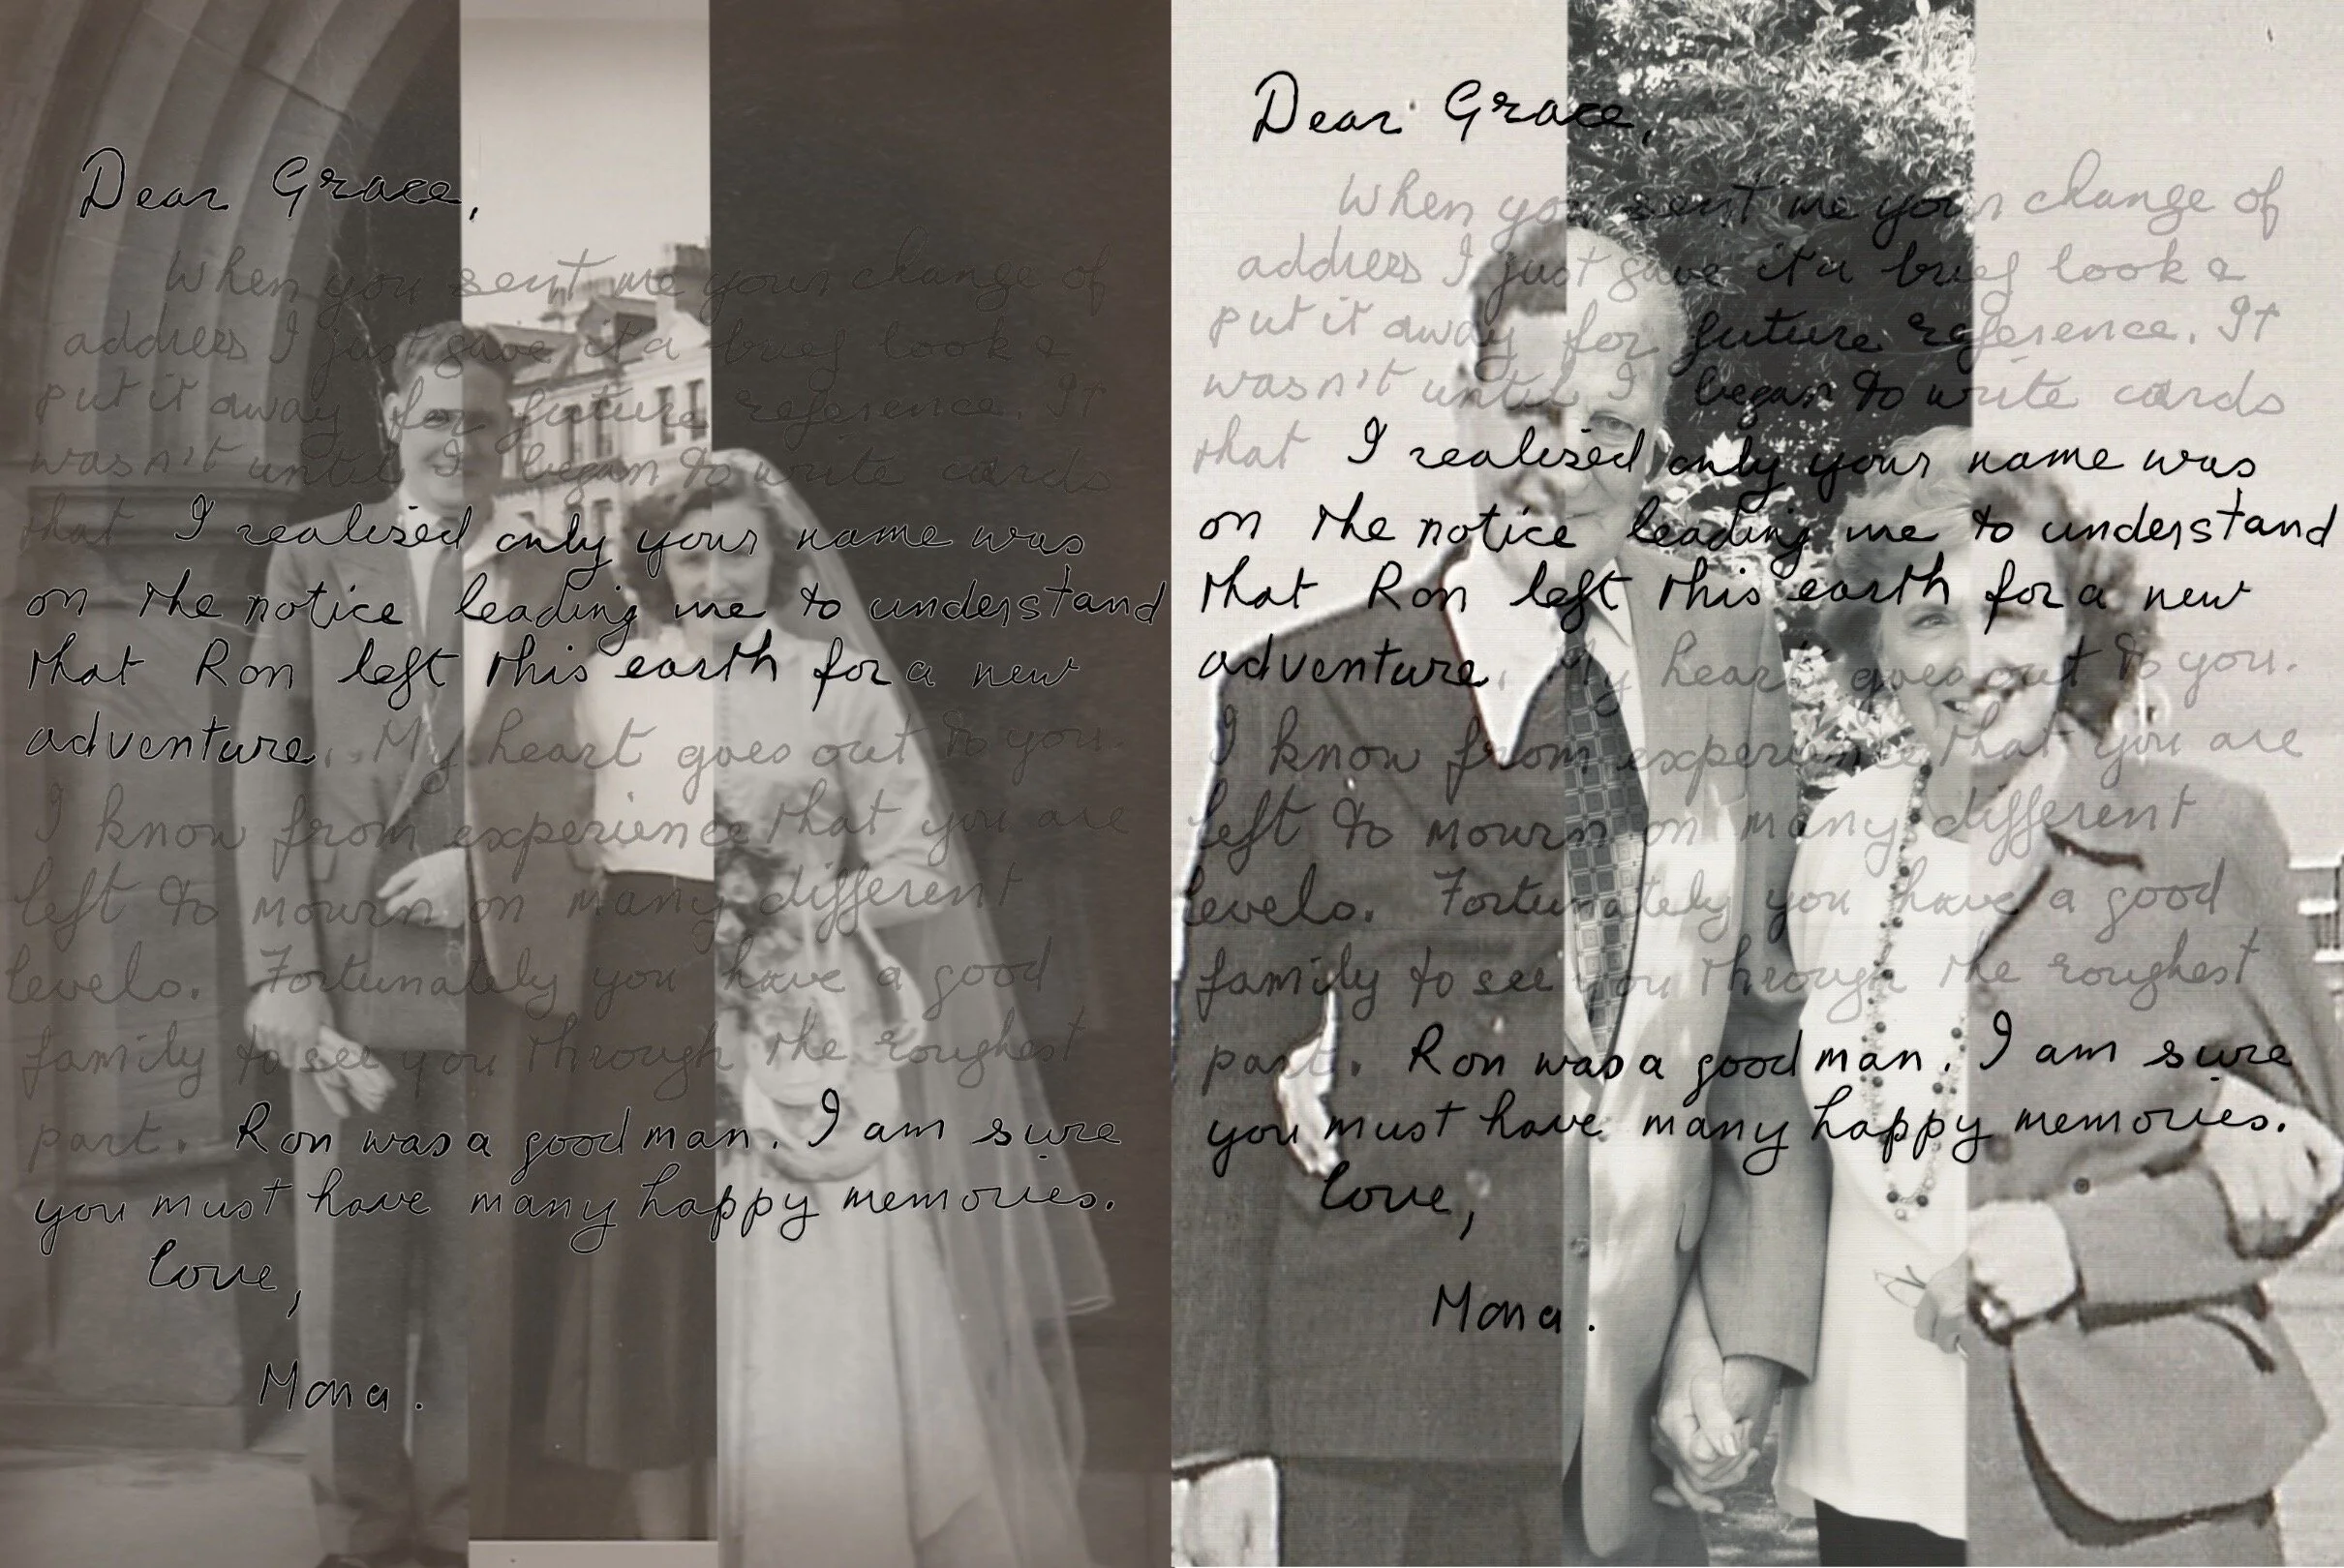 Dear Grace,
When you sent me your change of
address I just gave it a brief look &
put it away for future reference. It
wasn't until I began to write cards
that I realised only your name was
on the notice leading me to understand
that Ron left this earth for a new
adventure. My heart goes out to you.
I know from experience that you are
left to mourn on many different
levels. Fortunately you have a good
family to see you through the roughest
part. Ron was a good man. I am sure
you must have many happy memories.
Love,
Mona.
Dear Grace,
When you sent me your change of
address I just gave it a brief look &
put it away for future reference. It
wasn't until I began to write cards
that I realised only your name was
on the notice leading me to understand
that Ron left this earth for a new
adventure. My heart goes out to you.
I know from experience that you are
left to mourn on many different
levels. Fortunately you have a good
family to see you through the roughest
part. Ron was a good man. I am sure
you must have many happy memories.
Love,
Mona.